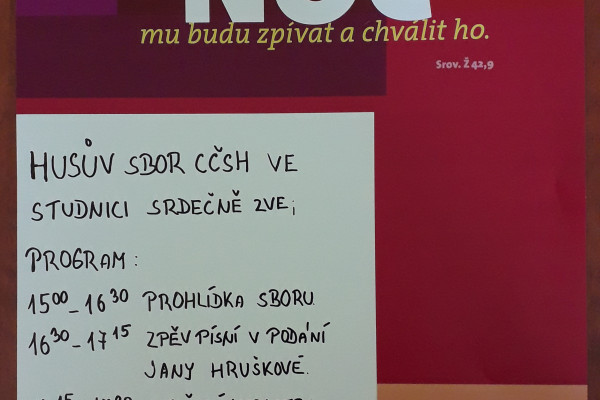 NOC
mu budu zpívat a chválit ho.
Srov. Ž 42,9
HUSŮV SBOR CČSH VE
STUDNICI SRDEČNĚ ZVE;
PROGRAM:
15⁰⁰ - 16³⁰ PROHLÍDKA SBORU
16³⁰ - 17¹⁵ ZPĚV PÍSNÍ V PODÁNÍ
JANY HRUŠKOVÉ.